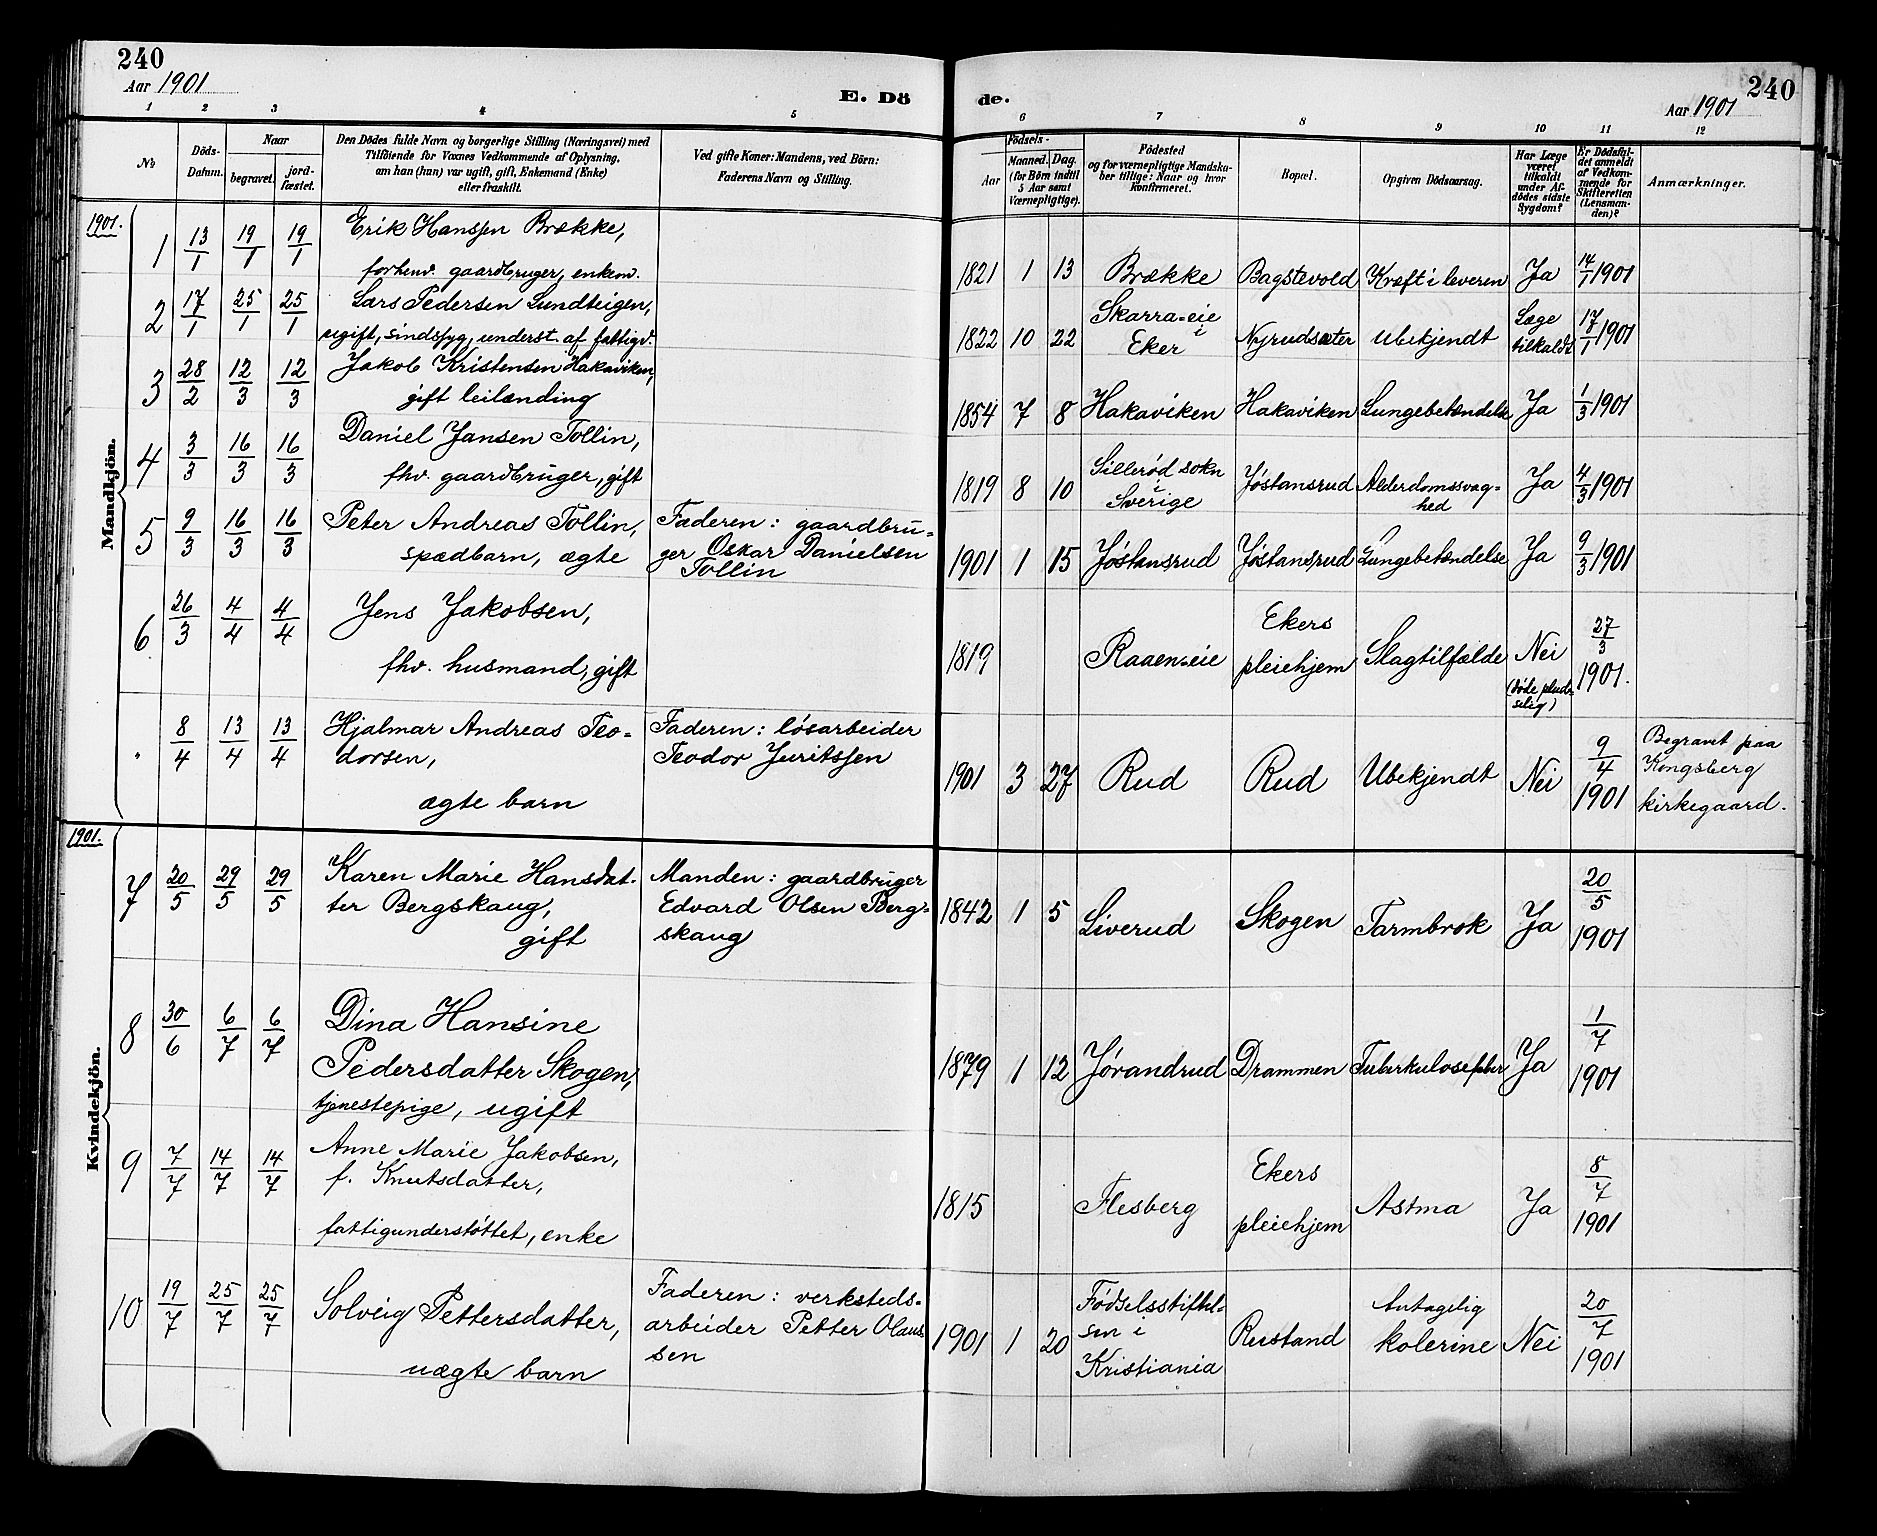 240
Aar 1901
E. Dö
de.
240
Aar 1901
1 2 3 4 5 6 7 8 9 10 11 12
No
Döds-
Datum.
Naar
begravet.
jord-
fæstet.
Den Dödes fulde Navn og borgerlige Stilling (Næringsvei) med
Tilföiende for Voxnes Vedkommende af Oplysning,
om han (hun) var ugift, gift, Enkemand (Enke)
eller fraskilt.
Ved gifte Koner: Mandens, ved Börn:
Faderens Navn og Stilling.
Födsels-
Aar
Maaned.
Dag.
(for Börn indtil
5 Aar samt
Værnepligtige).
Födested
og for værnepligtige Mandska-
ber tillige: Naar og hvor
Konfirmeret.
Bopæl.
Opgiven Dödsaarsag.
Har Læge
været
tilkaldt
under Af-
dödes sidste
Sygdom?
Er Dödsfal-
det anmeldt
af Vedkom-
mende for
Skifteretten
(Lensman-
den)?
Anmærkninger.
1901.
Mandkjön.
1 13/1 19/1 19/1 Erik Hanssen Brække,
forhenv. gaardbruger, enkem. 1821 1 13 Brække Bagstevold Kræft i leveren Ja 14/1 1901
2 17/1 25/1 25/1 Lars Pedersen Lundteigen,
ugift, sindssyg, underst. af fattigv. 1822 10 22 Skarra-eie
i
Eker Nyrudsæter Ubekjendt Læge
tilkaldt 17/1 1901
3 28/2 12/3 12/3 Jakob Kristensen Hakaviken,
gift leilænding 1854 7 8 Hakaviken Hakaviken Lungebetændelse Ja 1/3 1901
4 3/3 16/3 16/3 Daniel Jansen Tollin,
fhv. gaardbruger, gift 1819 8 10 Sillerød sokn
i
Sverige Jøstansrud Alderdomssvag-
hed Ja 4/3 1901
5 9/3 16/3 16/3 Peter Andreas Tollin,
spædbarn, ægte Faderen: gaardbru-
ger Oskar Danielsen
Tollin 1901 1 15 Jøstansrud Jøstansrud Lungebetændelse Ja 9/3 1901
6 26/3 4/4 4/4 Jens Jakobsen,
fhv. husmand, gift 1819 Raaen-eie Ekers
pleiehjem Slagtilfælde Nei
(døde pluds-
selig) 27/3
1901.
" 8/4 13/4 13/4 Hjalmar Andreas Teo-
dorsen,
ægte barn Faderen: løsarbeider
Teodor Juritssen 1901 3 27 Rud Rud Ubekjendt Nei 9/4
1901 Begravet paa
Kongsberg
kirkegaard.
1901.
Kvindekjön.
7 20/5 29/5 29/5 Karen Marie Hansdat-
ter Bergskaug,
gift Manden: gaardbruger
Edvard Olsen Berg-
skaug 1842 1 5 Liverud Skogen Tarmbrok Ja 20/5
1901
8 30/6 6/7 6/7 Dina Hansine
Pedersdatter Skogen,
tjenestepige, ugift 1879 1 12 Jørandrud Drammen Ja 1/7
1901
9 7/7 14/7 14/7 Anne Marie Jakobsen,
f. Knutsdatter,
fattigunderstøttet, enke 1815 Flesberg Ekers
pleiehjem Astma Ja 8/7
1901
10 19/7 25/7 25/7 Solveig Pettersdatter,
uægte barn Faderen: verksteds-
arbeider Petter Olaus-
sen 1901 1 20 Fødselsstiftel-
sen i
Kristiania Rustand Antagelig
kolerine Nei 20/7
1901